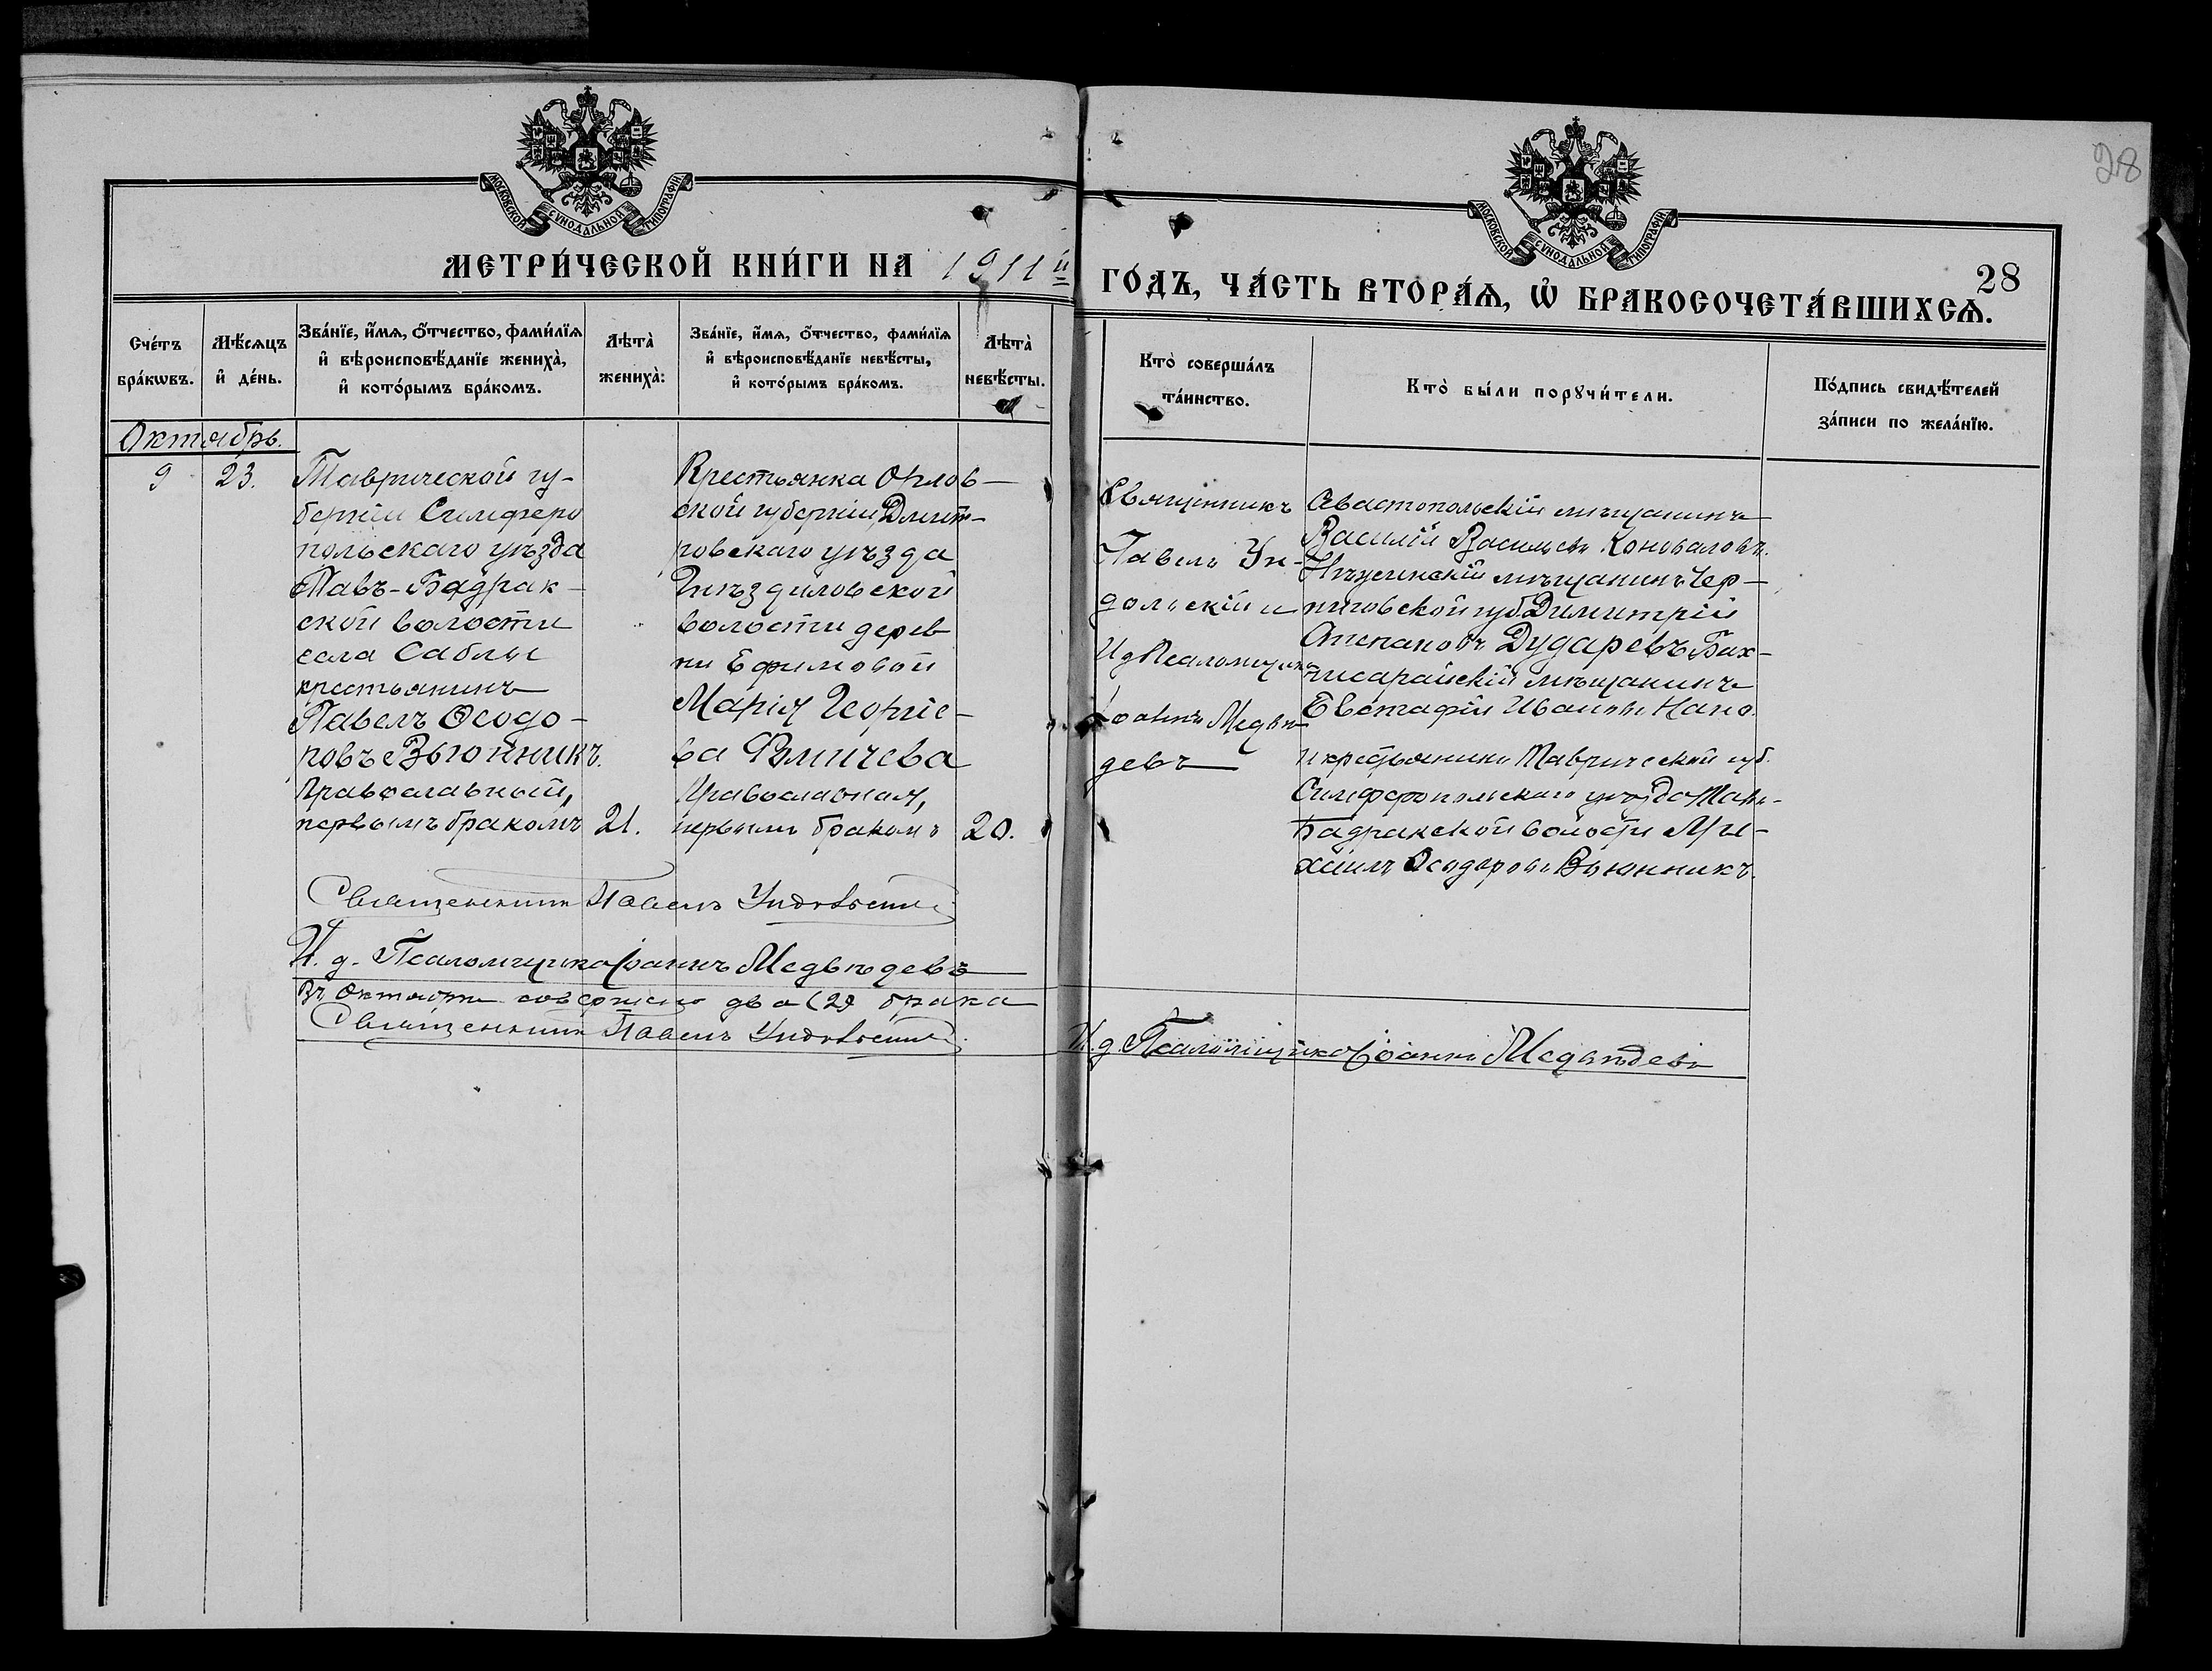 28
28
МОСКОВСКОЙ СѴНОДАЛЬНОЙ ТИПОГРАФІИ
МОСКОВСКОЙ СѴНОДАЛЬНОЙ ТИПОГРАФІИ
МЕТРИ́ЧЕСКОЙ КНИ́ГИ НА 1911й
ГО́ДЪ, ЧА́СТЬ ВТОРА́Ѧ, Ѡ҆ БРАКОСОЧЕТА́ВШИХСѦ.
Сче́тъ
бра́кѡвъ.
Мѣ́сѧцъ
и҆ де́нь.
Зва́нїе, и҆́мѧ, ѻ҆́тчество, фами́лїѧ
и҆ вѣроисповѣ́данїе жениха̀,
и҆ кото́рымъ бра́комъ.
Лѣта̀
жениха̀:
Зва́нїе, и҆́мѧ, ѻ҆́тчество, фами́лїѧ
и҆ вѣроисповѣ́данїе невѣ́сты,
и҆ кото́рымъ бра́комъ.
Лѣта̀
невѣ́сты.
Кто̀ соверша́лъ
та́инство.
Кто̀ бы́ли порꙋчи́тели.
По́дпись свидѣ́телей
за́писи по жела́нїю.
Октябрь.
9
23.
Таврической гу-
берніи Симферо
польскаго уѣзда
Тавъ-Бадрак-
ской волости
села Саблы
крестьянинъ
Павелъ Ѳеодо-
ровъ Вьюнникъ.
Православный,
первымъ бракомъ
21.
Крестьянка Орлов-
ской губерніи Дмит-
ровскаго уѣзда
Гнѣздиловской
волости дерев
ни Ефимовой
Марія Георгіе-
ва
Православная,
первымъ бракомъ
20.
Священникъ
Павелъ Ун-
дольскій и
И д Псаломщика
Іоаннъ Медвѣ-
девъ
Севастопольскій мѣщанинъ
Василій Васильевъ Коноваловъ.
Нѣжинскій мѣщанинъ Чер-
ниговской губ. Димитрій
Степановъ Дударевъ Бах-
чисарайскій мѣщанинъ
Евстафій Ивановъ
и крестьянинъ Таврической губ.
Симферопольскаго уѣзда Тавъ-
Бадракской волости Ми-
хаилъ Ѳеодоровъ Вьюнникъ.
Священникъ Павелъ Ундольскій
И. д. Псаломщика Іоаннъ Медвѣдевъ
Въ Октябрѣ совершено два (2) брака
Священникъ Павелъ Ундольскій
И. д. Псаломщика Іоаннъ Медвѣдевъ